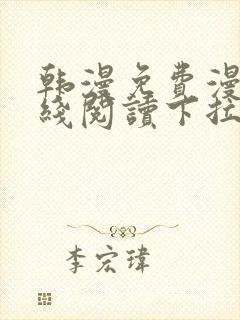 韩漫免费漫
线阅读下拉
李宏瑋